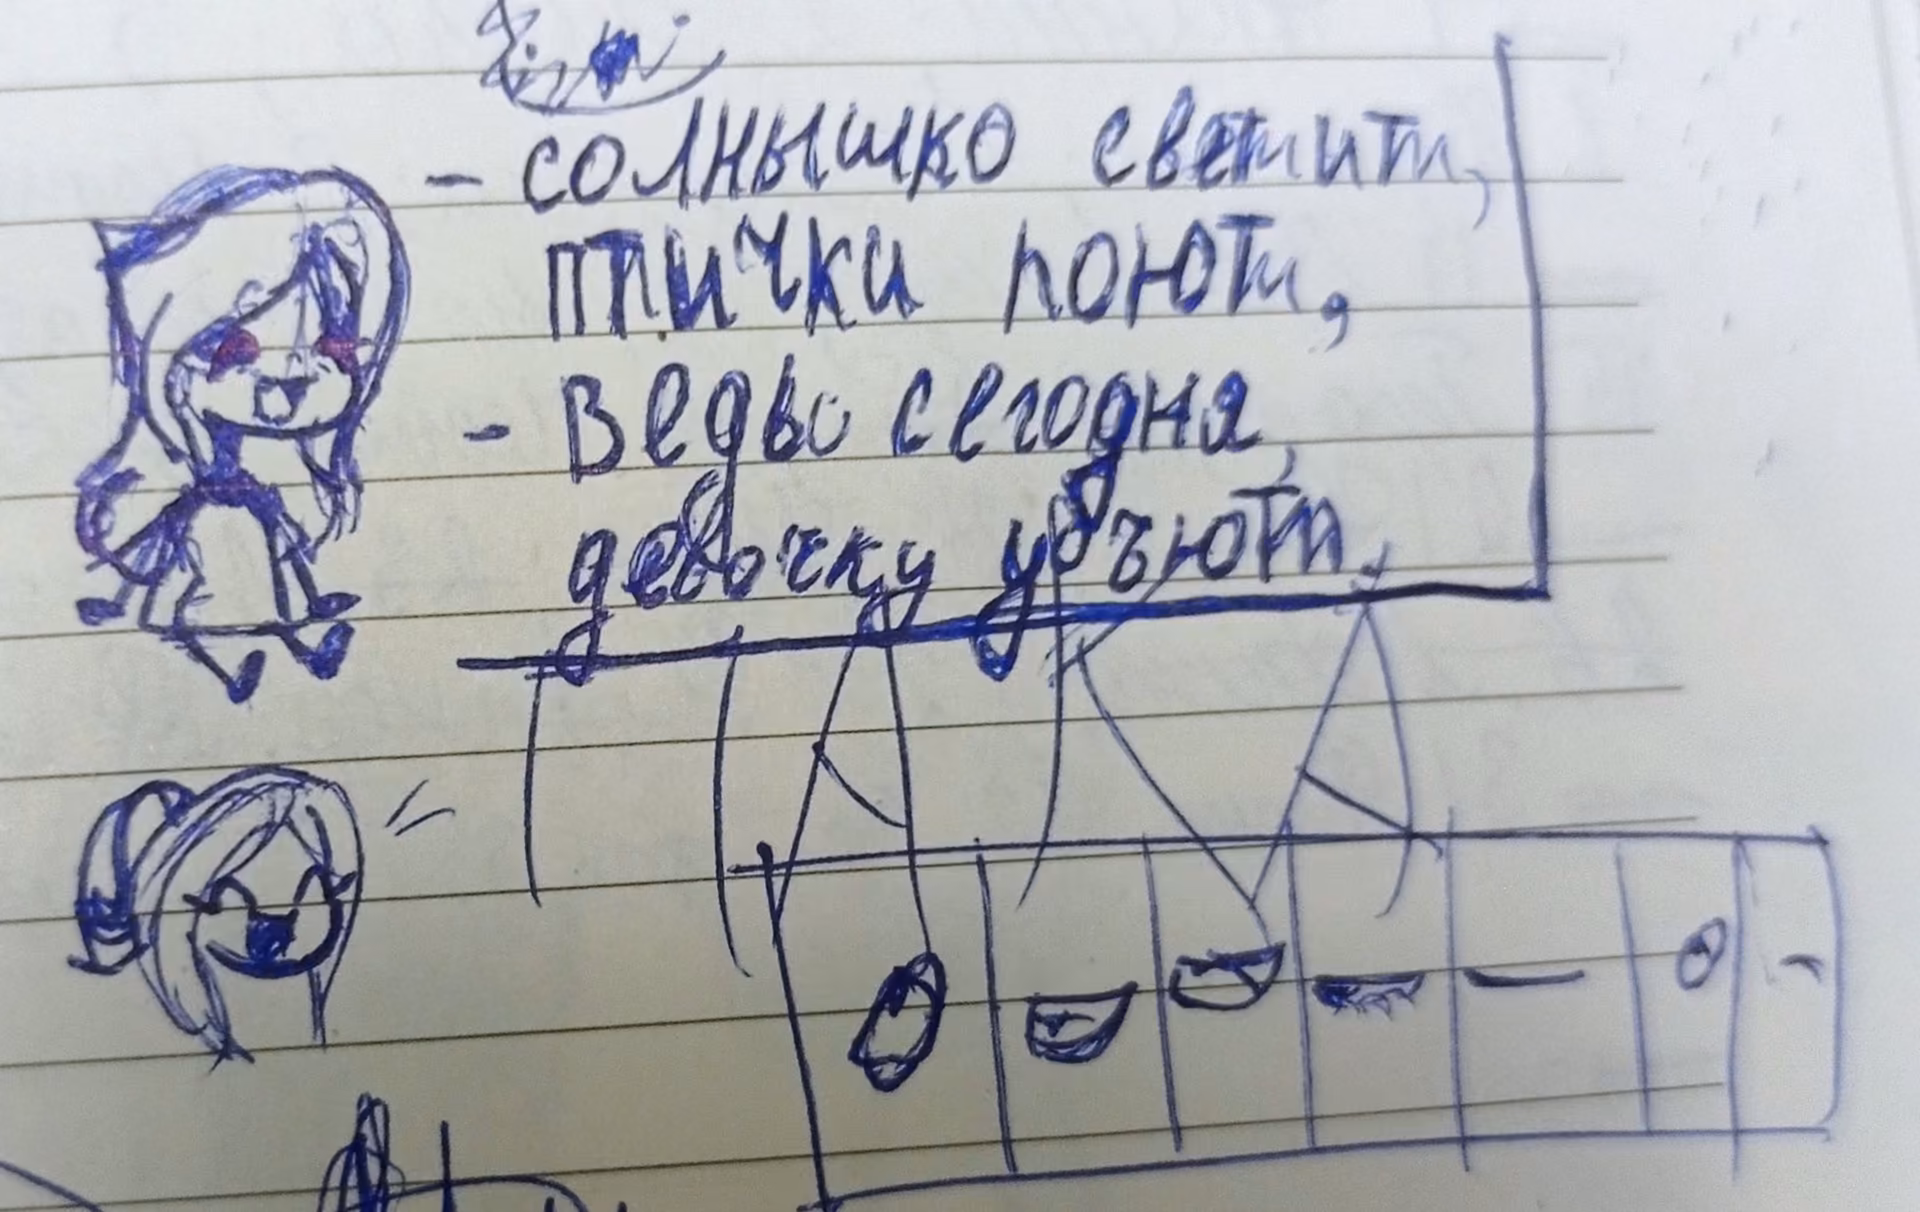 - солнышко светит,
птички поют,
- ведь сегодня,
девочку убъют.